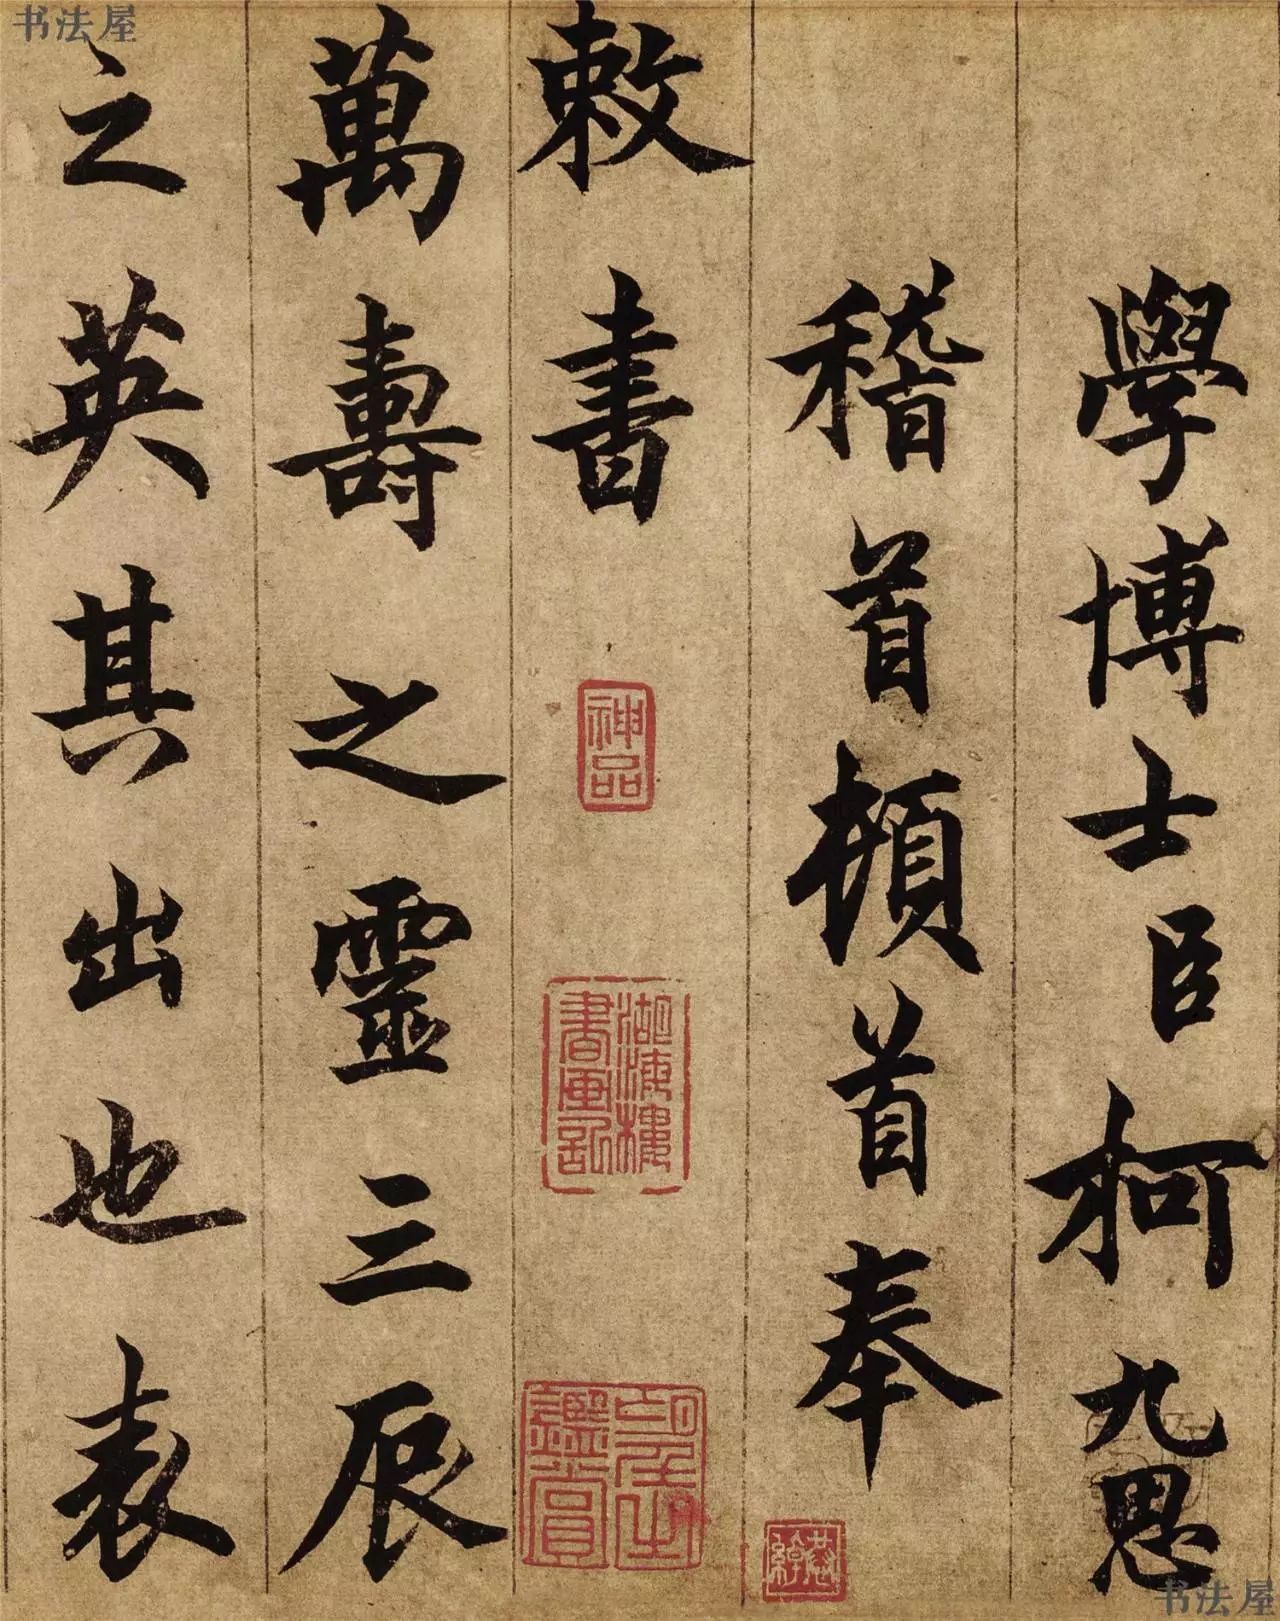 書法屋
學博士臣柯九思
稽首頓首奉
敕書
神品
湖海樓書畫記
萬壽之靈三辰
之英其出也表
書法屋